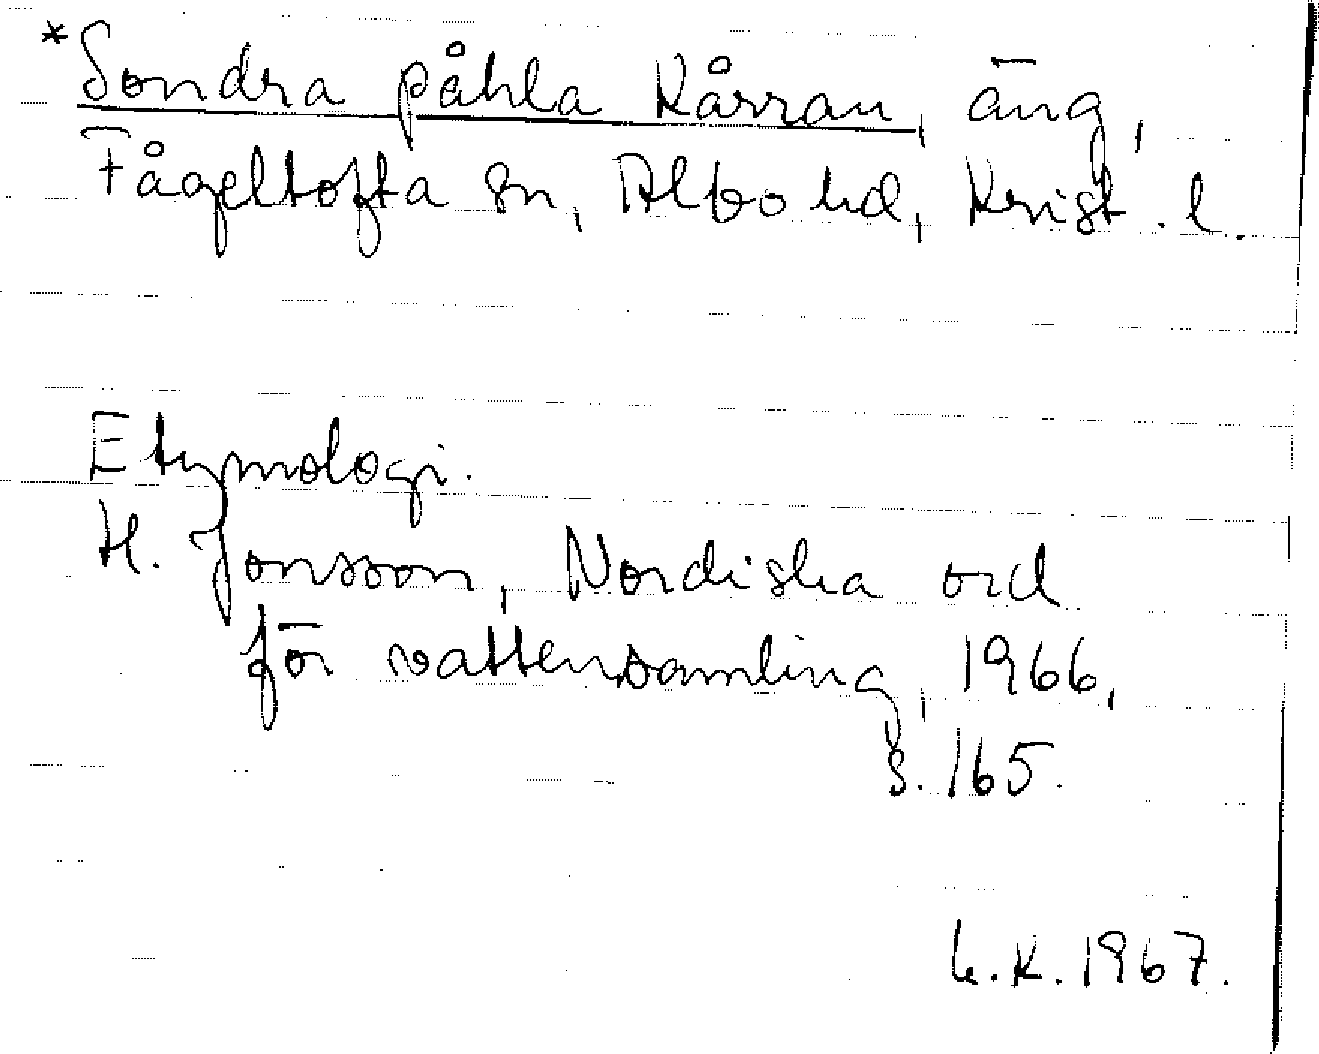 *Sondra påhla Kårran, äng,
Fågeltofta sn, Albo hd, Krist. l.
Etymologi.
H. Jonsson, Nordiska ord
för vattensamling, 1966,
s. 165.
L.K. 1967.